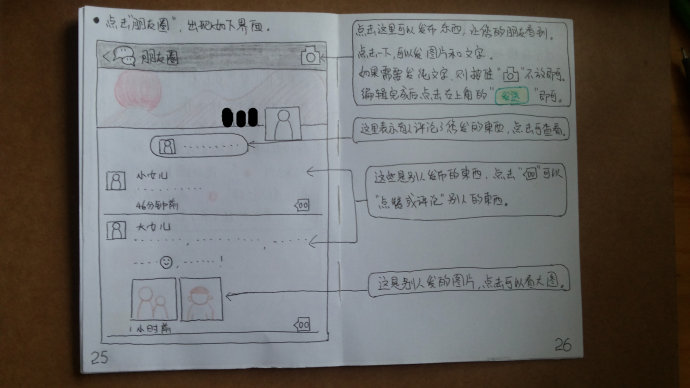 点击“朋友圈”,出现如下界面。
朋友圈
小女儿
46分钟前
大女儿
1小时前
25
点击这里可以发布东西,让您的朋友看到。
点击一下,可以发图片和文字。
如果需要发纯文字,则按住“ ”不放即可。
编辑完成后点击右上角的“发送”即可。
这里表示有人评论了您发的東西,点击可查看。
这些是别人发布的東西,点击“ ”可以
“点赞或评论”别人的東西。
这是别人发的图片,点击可以看大图。
26